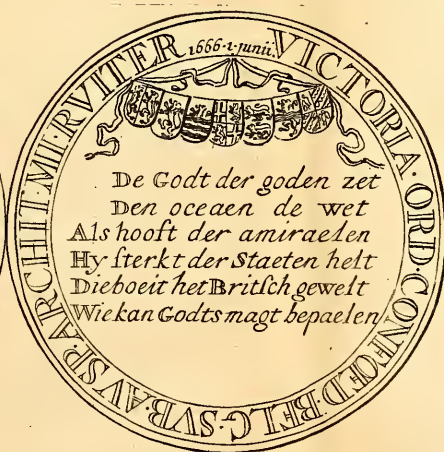 1666·1·junii·
VICTORIA·ORD·CONFŒD·BELG·SVB·AVSP·ARCHIT·M·RVITER
De Godt der goden zet
Den oceaen de wet
Als hooft der amiraelen
Hy ſterkt der Staeten helt
Die boeit het Britſch gewelt
Wie kan Godts magt bepaelen